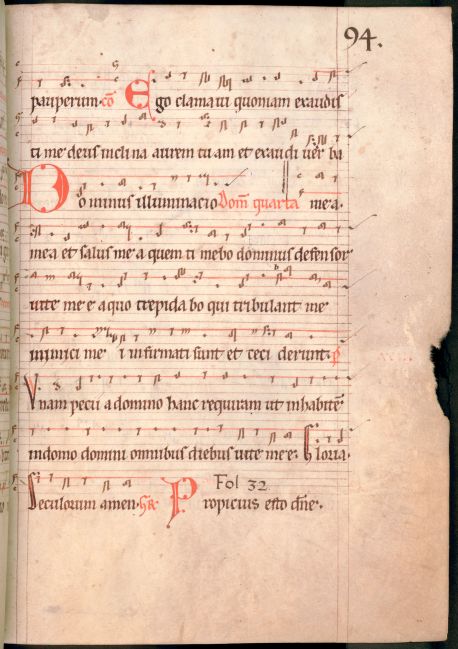 94.
pauperum. cō Ego clamaui quoniam exaudis
ti me deus inclina aurem tuam et exaudi uer ba
Dominus illuminacio Dom̄ quarta mea.
mea et salus mea quem timebo dominus defensor
uite mee a quo trepidabo qui tribulant me
inimici mei infirmati sunt et ceciderunt. p̄
Vnam pecii a domino hanc requiram ut inhabitē
in domo domini omnibus diebus uite mee. Gloria.
Seculorum amen. Propicius esto dn̄e.
Fol 32